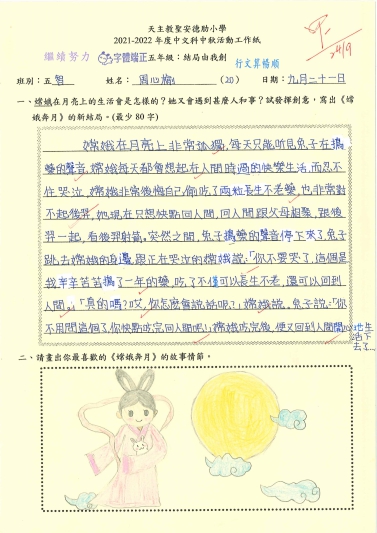 天主教聖安德肋小學
2021-2022 年度中文科中秋活動工作紙
繼續努力 字體端正 五年級：結局由我創 行文算暢順
24/9
班別：五 智 姓名： (20) 日期：九月二十一日
一、嫦娥在月亮上的生活會是怎樣的？她又會遇到甚麼人和事？試發揮創意，寫出《嫦
娥奔月》的新結局。(最少 80 字)
嫦娥在月亮上非常孤獨，每天只能听見兔子在搗
藥的聲音，嫦娥每天都會想起在人間時過的快樂生活，而忍不
住哭泣，嫦娥非常後悔自己偷吃了兩粒長生不老藥，也非常對
不起後羿，她現在只想快點回人間，回人間跟父母相聚，跟後
羿一起，看後羿射箭。突然之間，兔子搗藥的聲音停下來了，兔子
跳去嫦娥的身邊，跟正在哭泣的嫦娥說：「你不要哭了，這個是
我辛辛苦苦搗了一年的藥，吃了不僅可以長生不老，還可以回到
人間。」「真的嗎？哎，你怎麼會說話呢？」嫦娥說。兔子說：「你
不用問這個了，你快點吃完回人間吧！」嫦娥吃完後，便又回到人間開心地生
活下
去了...
二、請畫出你最喜歡的《嫦娥奔月》的故事情節。